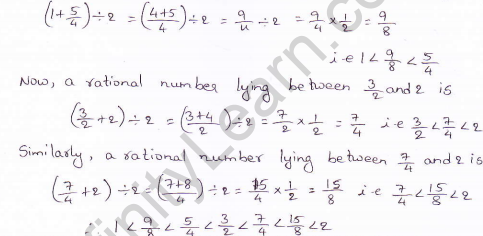 (1+5/4)÷2 = (4+5/4)÷2 = 9/4 ÷2 = 9/4 × 1/2 = 9/8
i.e 1 < 9/8 < 5/4
Now, a rational number lying between 3/2 and 2 is
(3/2 + 2)÷2 = (3+4/2)÷2 = 7/2 × 1/2 = 7/4 i.e 3/2 < 7/4 < 2
Similarly, a rational number lying between 7/4 and 2 is
(7/4 + 2) ÷2 = (7+8/4) ÷2 = 15/4 × 1/2 = 15/8 i.e 7/4 < 15/8 < 2
∴ 1 < 9/8 < 5/4 < 3/2 < 7/4 < 15/8 < 2
finityLearn.com